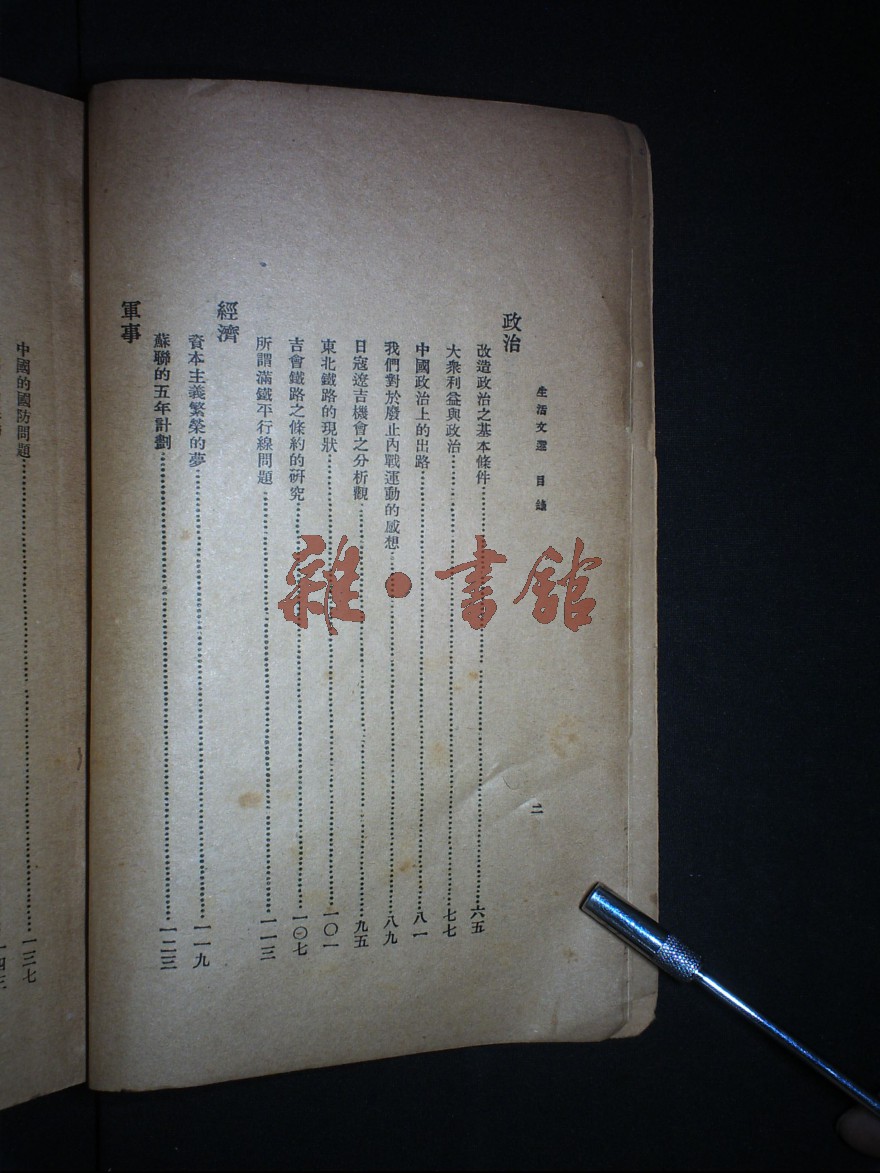 生活文選 目錄
二
政治
改造政治之基本條件 六五
大衆利益與政治 七七
中國政治上的出路 八一
我們對於廢止內戰運動的感想 八九
日寇遼吉機會之分析觀 九五
東北鐵路的現狀 一〇一
吉會鐵路之條約的研究 一〇七
所謂滿鐵平行線問題 一一三
經濟
資本主義繁榮的夢 一一九
蘇聯的五年計劃 一二三
軍事
中國的國防問題 一三七
雜·書館